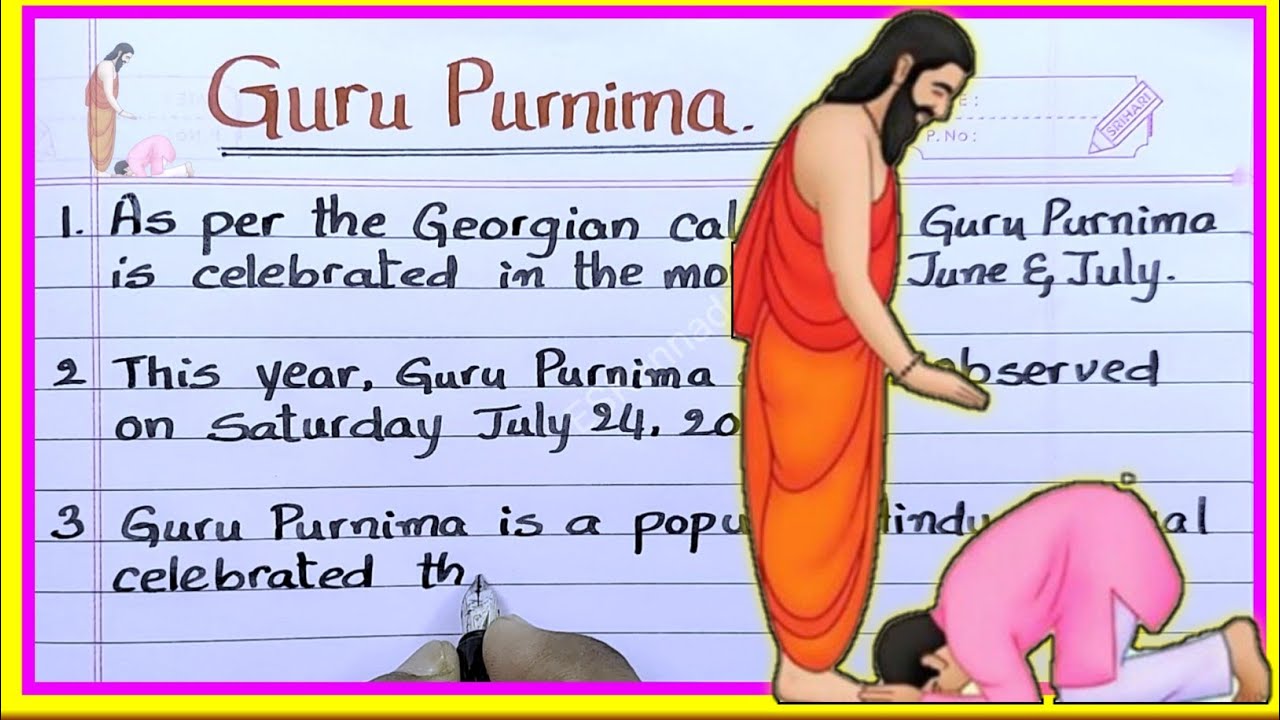 Guru Purnima.
P.No:
SRIHARI
1. As per the Georgian cal Guru Purnima
is celebrated in the mo June & July.
2 This year, Guru Purnima observed
on Saturday July 24, 20
3 Guru Purnima is a popu Hindu al
celebrated th